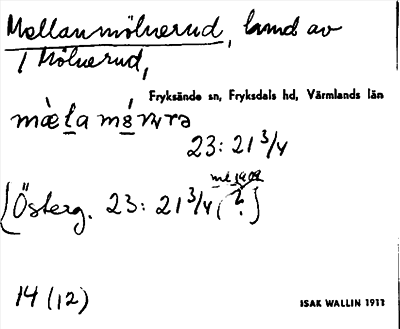 Mellanmölnerud, känd av
1 Mölnerud,
Fryksände sn, Fryksdals hd, Värmlands län
23: 21 3/4
(Österg. 23: 21 3/4 (?)
14 (12)
ISAK WALLIN 1911